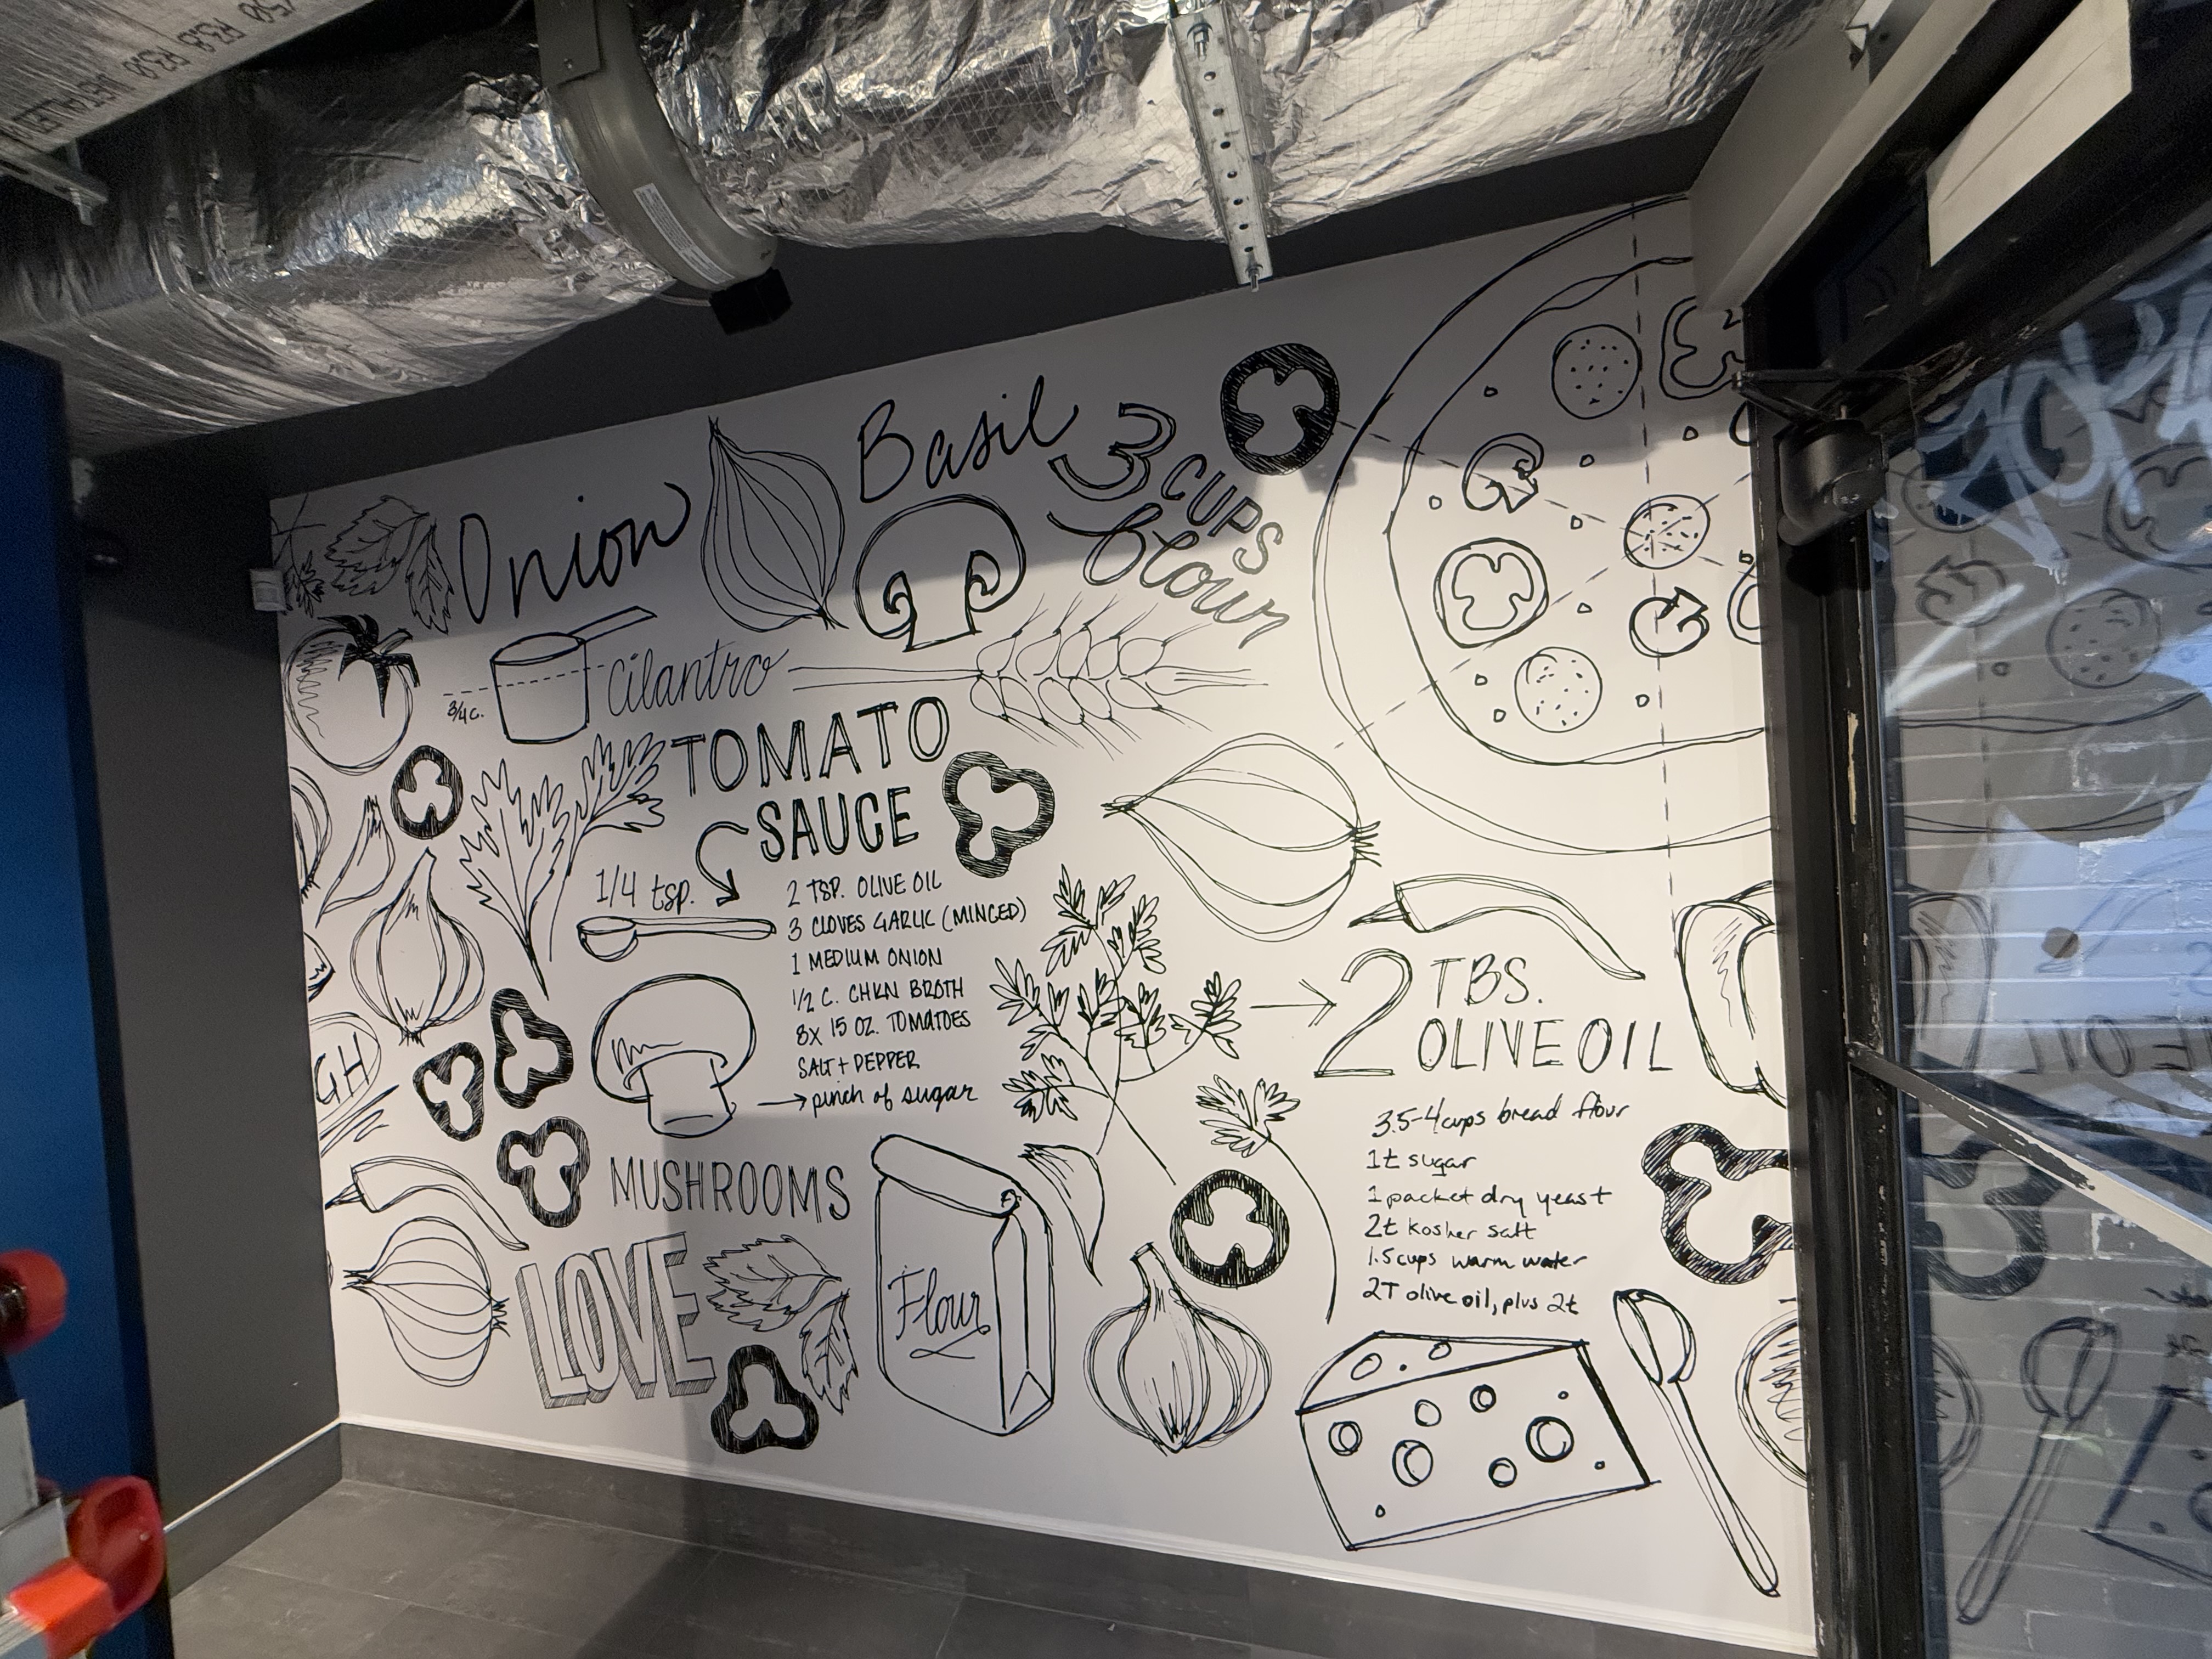 Onion
Basil
3 CUPS
flour
3/4 c.
Cilantro
TOMATO
SAUCE
1/4 tsp.
2 TSP. OLIVE OIL
3 CLOVES GARLIC (MINCED)
1 MEDIUM ONION
1/2 C. CHKN BROTH
8x 15 OZ. TOMATOES
SALT + PEPPER
pinch of sugar
GH
MUSHROOMS
LOVE
Flour
2 TBS.
OLIVE OIL
3.5-4 cups bread flour
1t sugar
1 packet dry yeast
2t kosher salt
1.5 cups warm water
2T olive oil, plus 2t